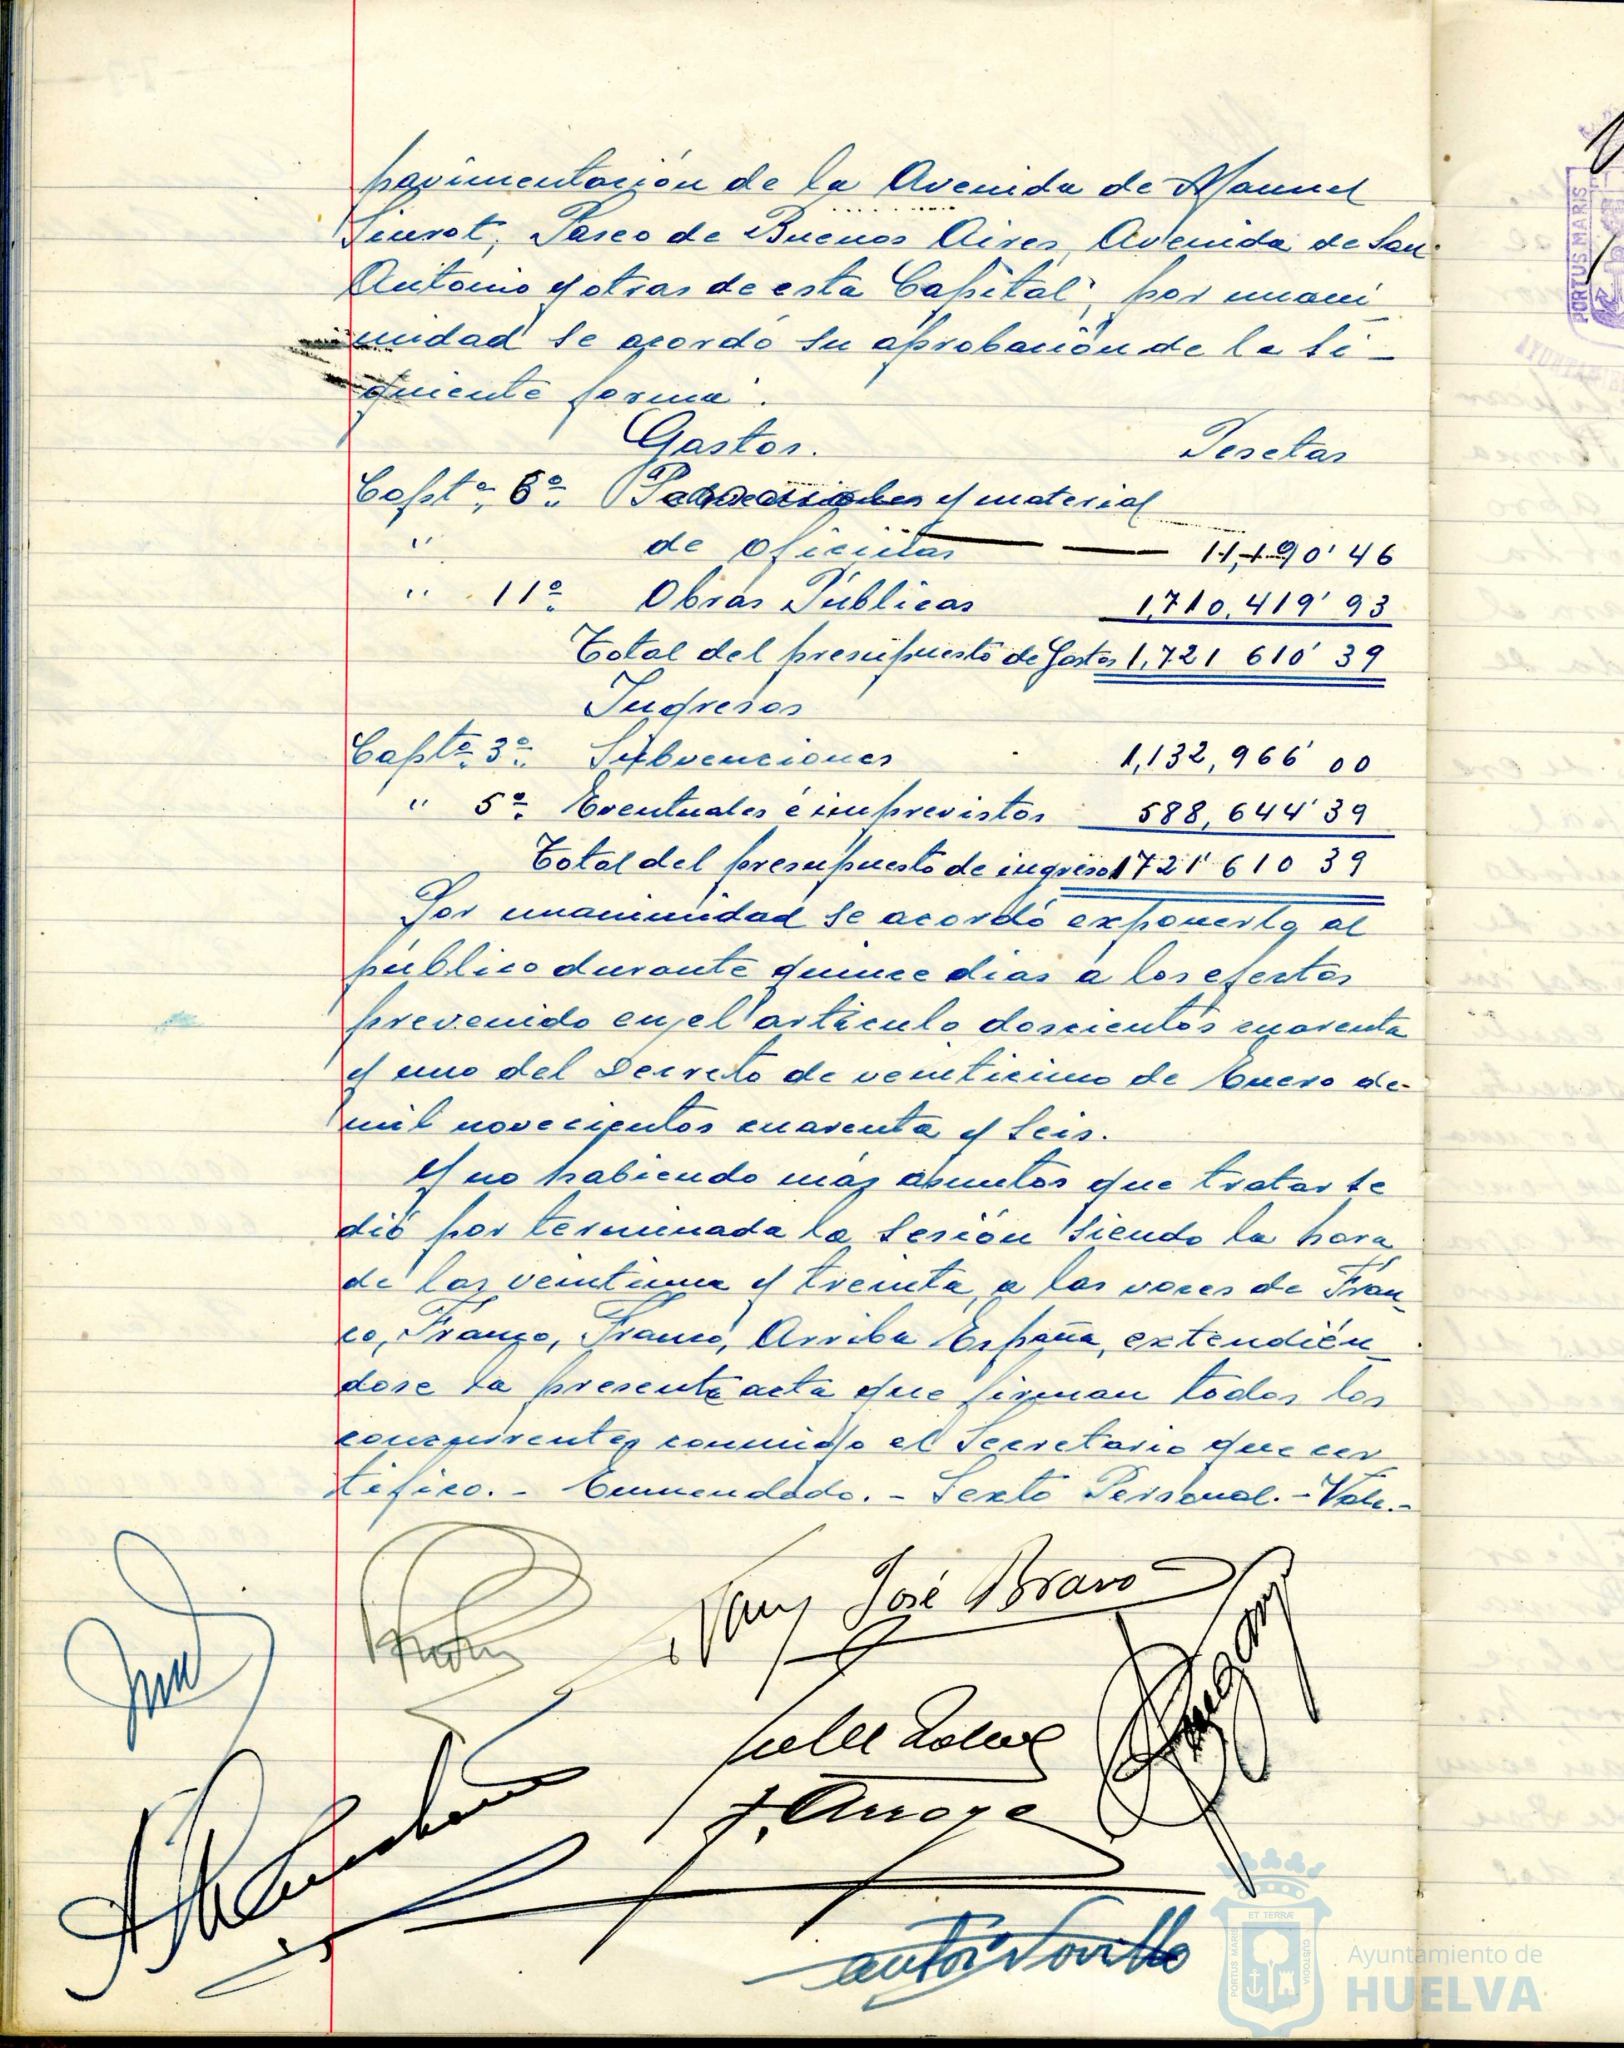 pavimentación de la Avenida de Manuel
Siurot, Paseo de Buenos Aires, Avenida de San
Antonio y otras de esta Capital, por unani
midad se acordó su aprobación de la si-
guiente forma:
Gastos. Pesetas
Capto. 6º Personal y material
" de oficinas 11,190'46
" 11º Obras Públicas 1,710,419'93
Total del presupuesto de Gastos 1,721 610'39
Ingresos
Capto. 3º Subvenciones 1,132,966'00
" 5º Eventuales é imprevistos 588,644'39
Total del presupuesto de ingresos 1721'610 39
Por unanimidad se acordó exponerlo al
público durante quince dias a los efectos
prevenido en el artículo doscientos cuarenta
y uno del Decreto de veinticinco de Enero de
mil novecientos cuarenta y seis.
Y no habiendo más asuntos que tratar se
dió por terminada la sesión siendo la hora
de las veintiuna y treinta, a las voces de Fran-
co, Franco, Franco, Arriba España, extendién-
dose la presente acta que firman todos los
concurrentes conmigo el Secretario que cer
tifico.- Enmendado.- Sexto Personal.- Vale.-
José Bravo
J. Arroyo
PORTUS MARIS
ET TERRÆ
PORTUS MARIS
CUSTODIA
Ayuntamiento de
HUELVA